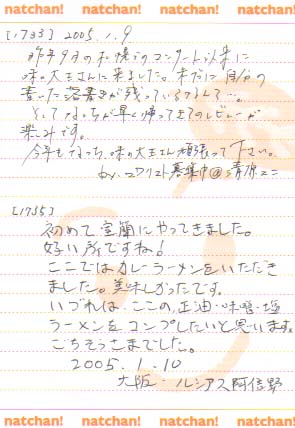 natchan! natchan! natchan! natchan!
[1733] 2005.1.9
昨年9月の札幌でのコンサート以来に
味の大王さんに来ました。まだに自分の
書いた落書きが残っているなんて…。
そしてなっちが早く帰ってきてのレビューが
楽しみです。
今年もなっち、味の大王さん頑張って下さい。
by.
[1735]
初めて室蘭にやってきました。
好い所ですね!
ここではカレーラーメンをいただき
ました。美味しかったです。
いづれは、ここの正油・味噌・塩
ラーメンをコンプしたいと思います。
ごちそうさまでした。
2005.1.10
大阪・ルシアス阿倍野
natchan! natchan! natchan! natchan!